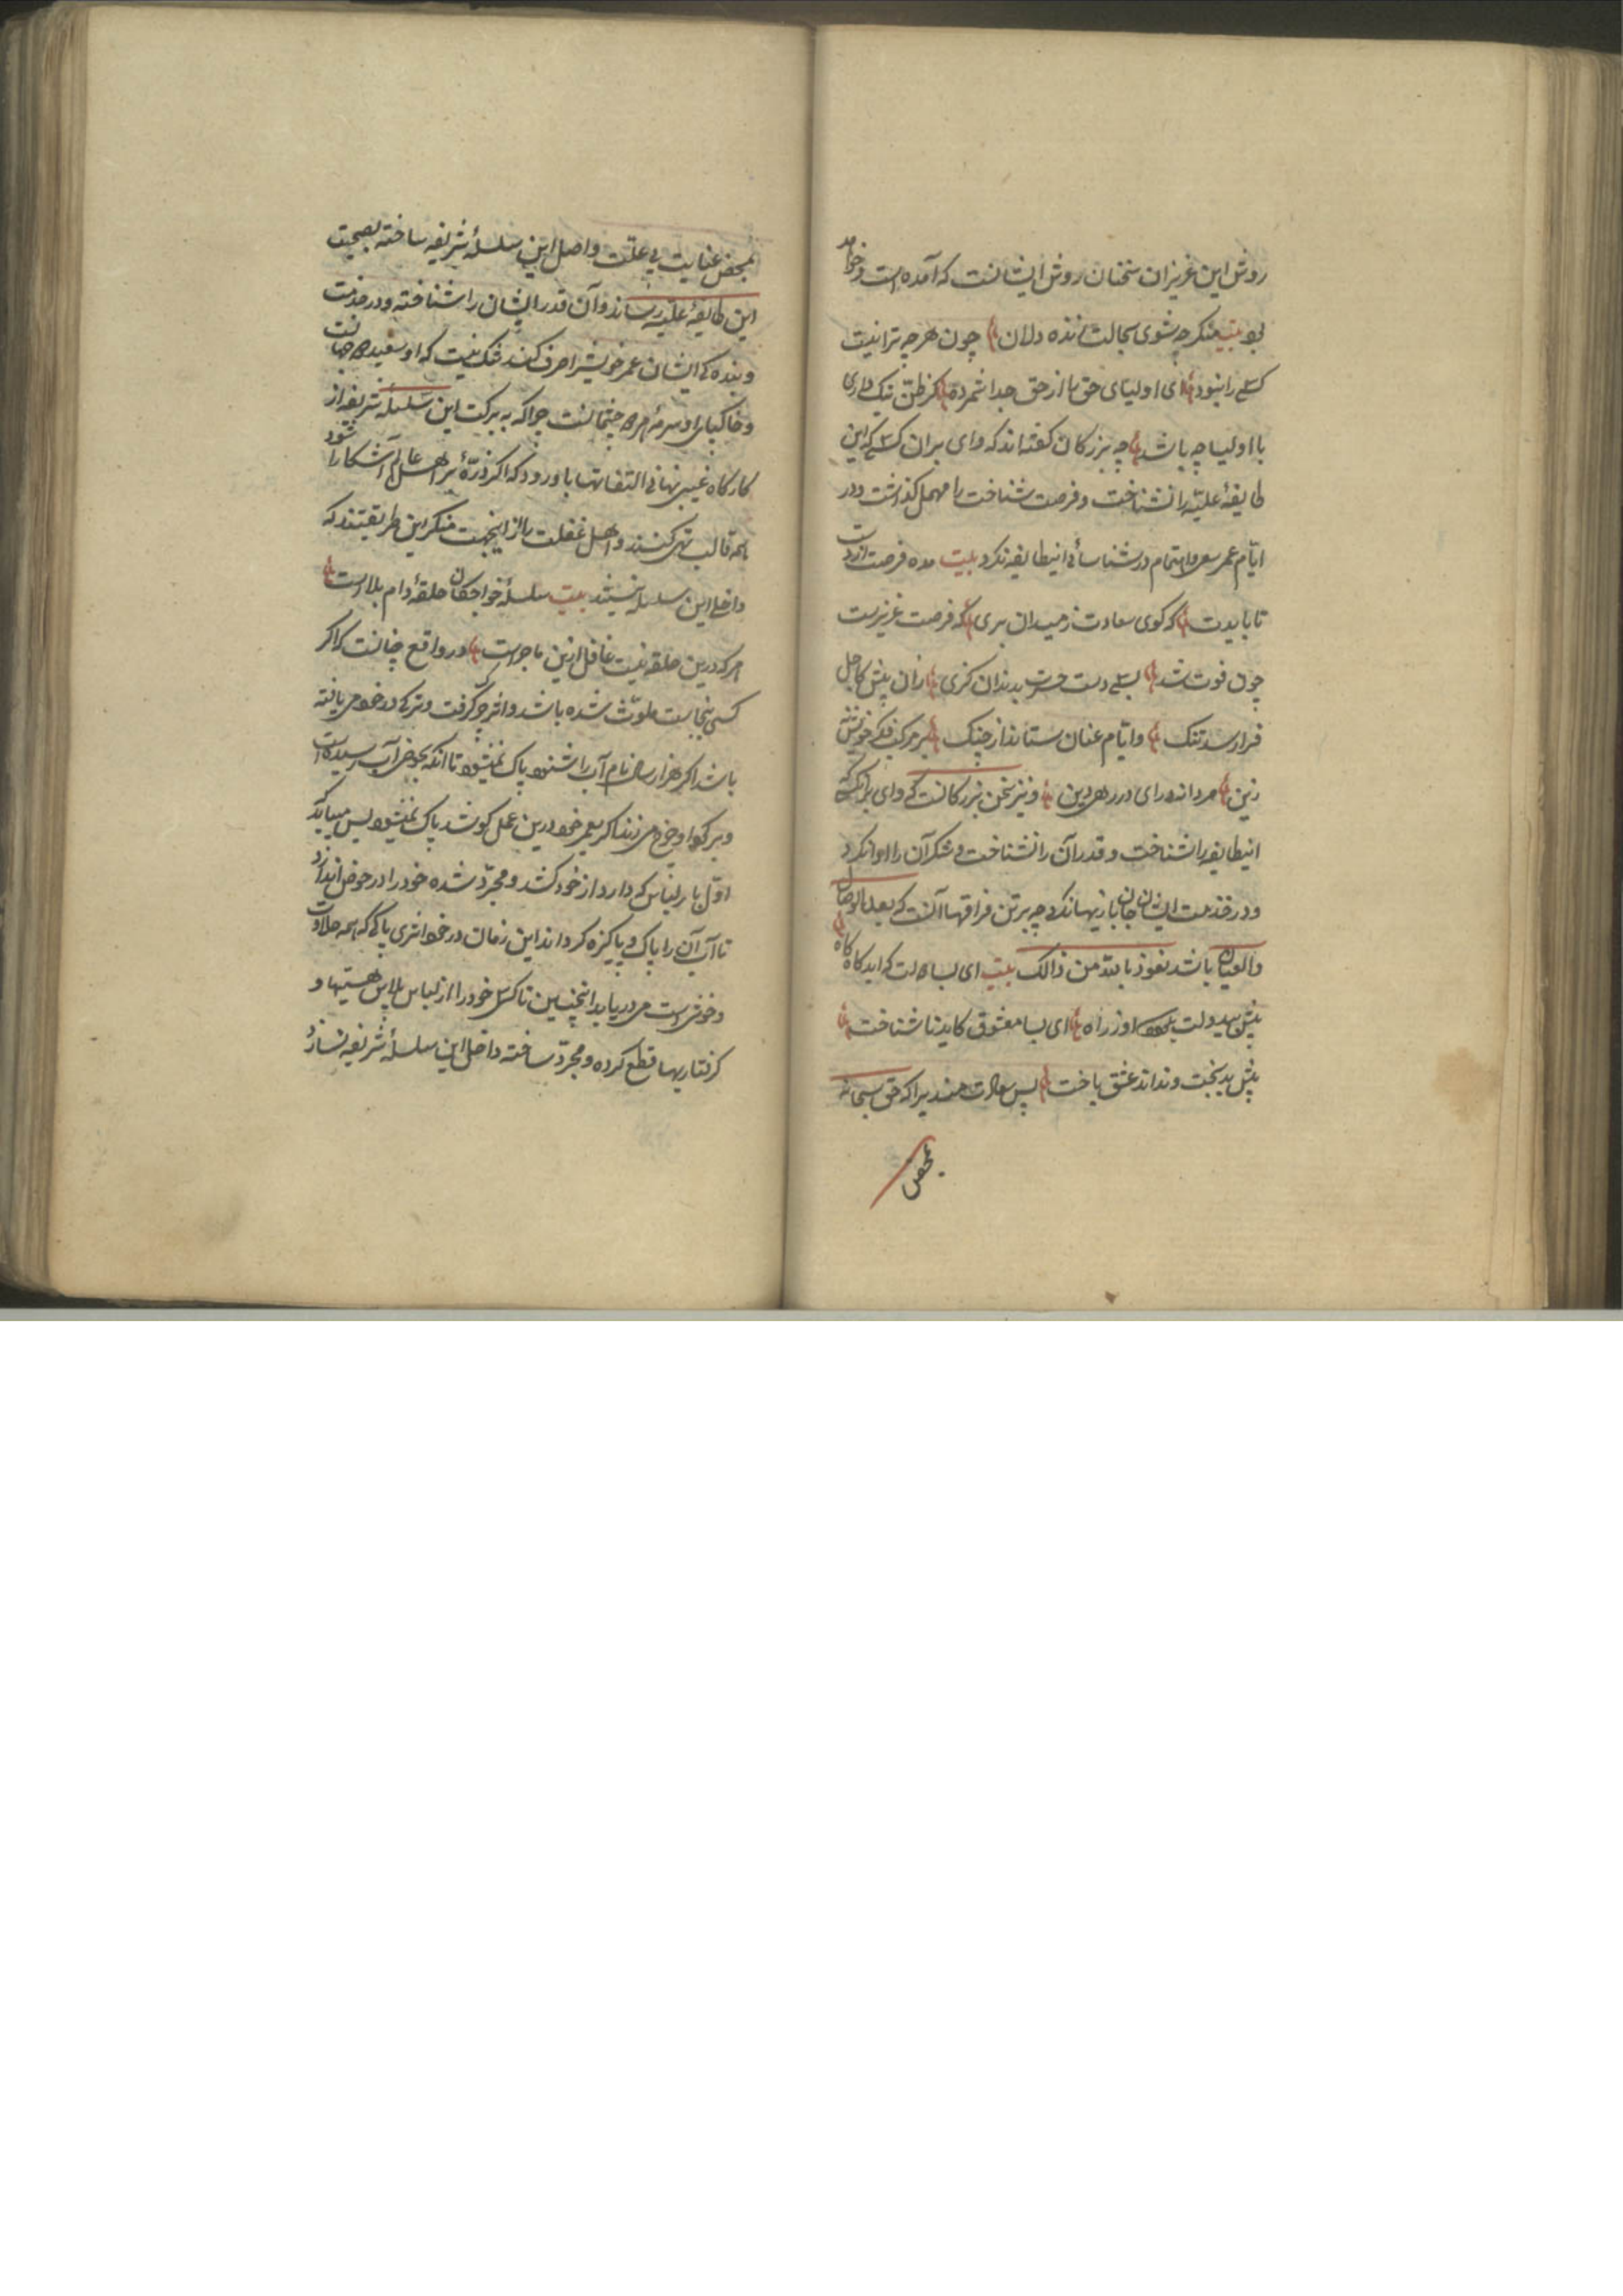 روش این عزیزان سخنان روش ایشانست که آمده است و خواهد
بود بیت منکر چه شوی بحالت زنده دلان چون هرچه ترا نیست
کسی را نبود ای اولیای حق را از حق جدا شمرده گر ظن نیک داری
با اولیا چه باشد چه بزرکان کفته اند که وای بران کسی که این
طایفهٔ علیه را نشناخت و فرصت شناخت را مهمل کذاشت و در
ایام عمر سعی و اهتمام در شناسائی اینطایفه نکرد بیت مده فرصت از دست
تا بایدت که کوی سعادت ز میدان بری که فرصت عزیزست
چون فوت شد بسی دست حسرت بدندان کزی زان پیش کاجل
فرا رسد تنک و ایام عنان ستاند از چنک بر مرکب فکر خویش نه
زین مردانه درای در ره دین و نیز سخن بزرکانست که وای بر آنکسی که
اینطایفه را شناخت و قدر آن را نشناخت و شکر آن را ادا نکرد
و در خدمت ایشان جان بازیها نکرد چه بدترین فراقها آنست که بعد الوصال
والعیان باشد نعوذ بالله من ذالک بیت ای بسا دولت که اید کاه کاه
پیش بیدولت او ز راه ای بسا معشوق کاید ناشناخت
پیش بدبخت و نداند عشق باخت پس سعادت مندیرا که حق سبحانه
بمحض
بمحض عنایت بی علت واصل این سلسلهٔ شریفه ساخته بصحبت
این طایفهٔ علیه رساند و آن قدر ایشان را شناخته و در خدمت
و بنده کی ایشان عمر خویش را صرف کند شک نیست که او سعید هر دو جهانست
و خاکپای او سرمهٔ هر دو چشمانست چرا که به برکت این سلسلهٔ شریفه از
کارکاه غیبی نهانی التفاتها باو رود که اکر ذرهٔ بر اهل عالم آشکارا شود
همه قالب تهی کنند و اهل غفلت را از اینجهت منکر این طریقتند که
داخل این سلسله نیستند بیت سلسلهٔ خواجکان حلقهٔ دام بلاست
هر که درین حلقه نیست غافل ازین ماجراست در واقع چنانست که اکر
کسی بنجاست ملوث شده باشد و اثر چرک کرفت و ترکی در خود می یافته
باشد اکر هزار سال نام آب را شنود پاک نمیشود تا آنکه بحوض آب رسیده است
و بر کرد او چرخ می زند اکر بعمر خود درین عمل کوشد پاک نمیشود پس میباید که
اول بار لباس که دارد از خود کشد و مجرد شده خود را در حوض اندازد
تا آب آن را پاک و پاکیزه کرداند این زمان در خود اثری پاکی که همه حلاوت
و خوشی است می دریابد انچنین تا کسی خود را از لباس پلاس هستیها و
کرفتاریها قطع کرده و مجرد ساخته داخل این سلسلهٔ شریفه نسازد